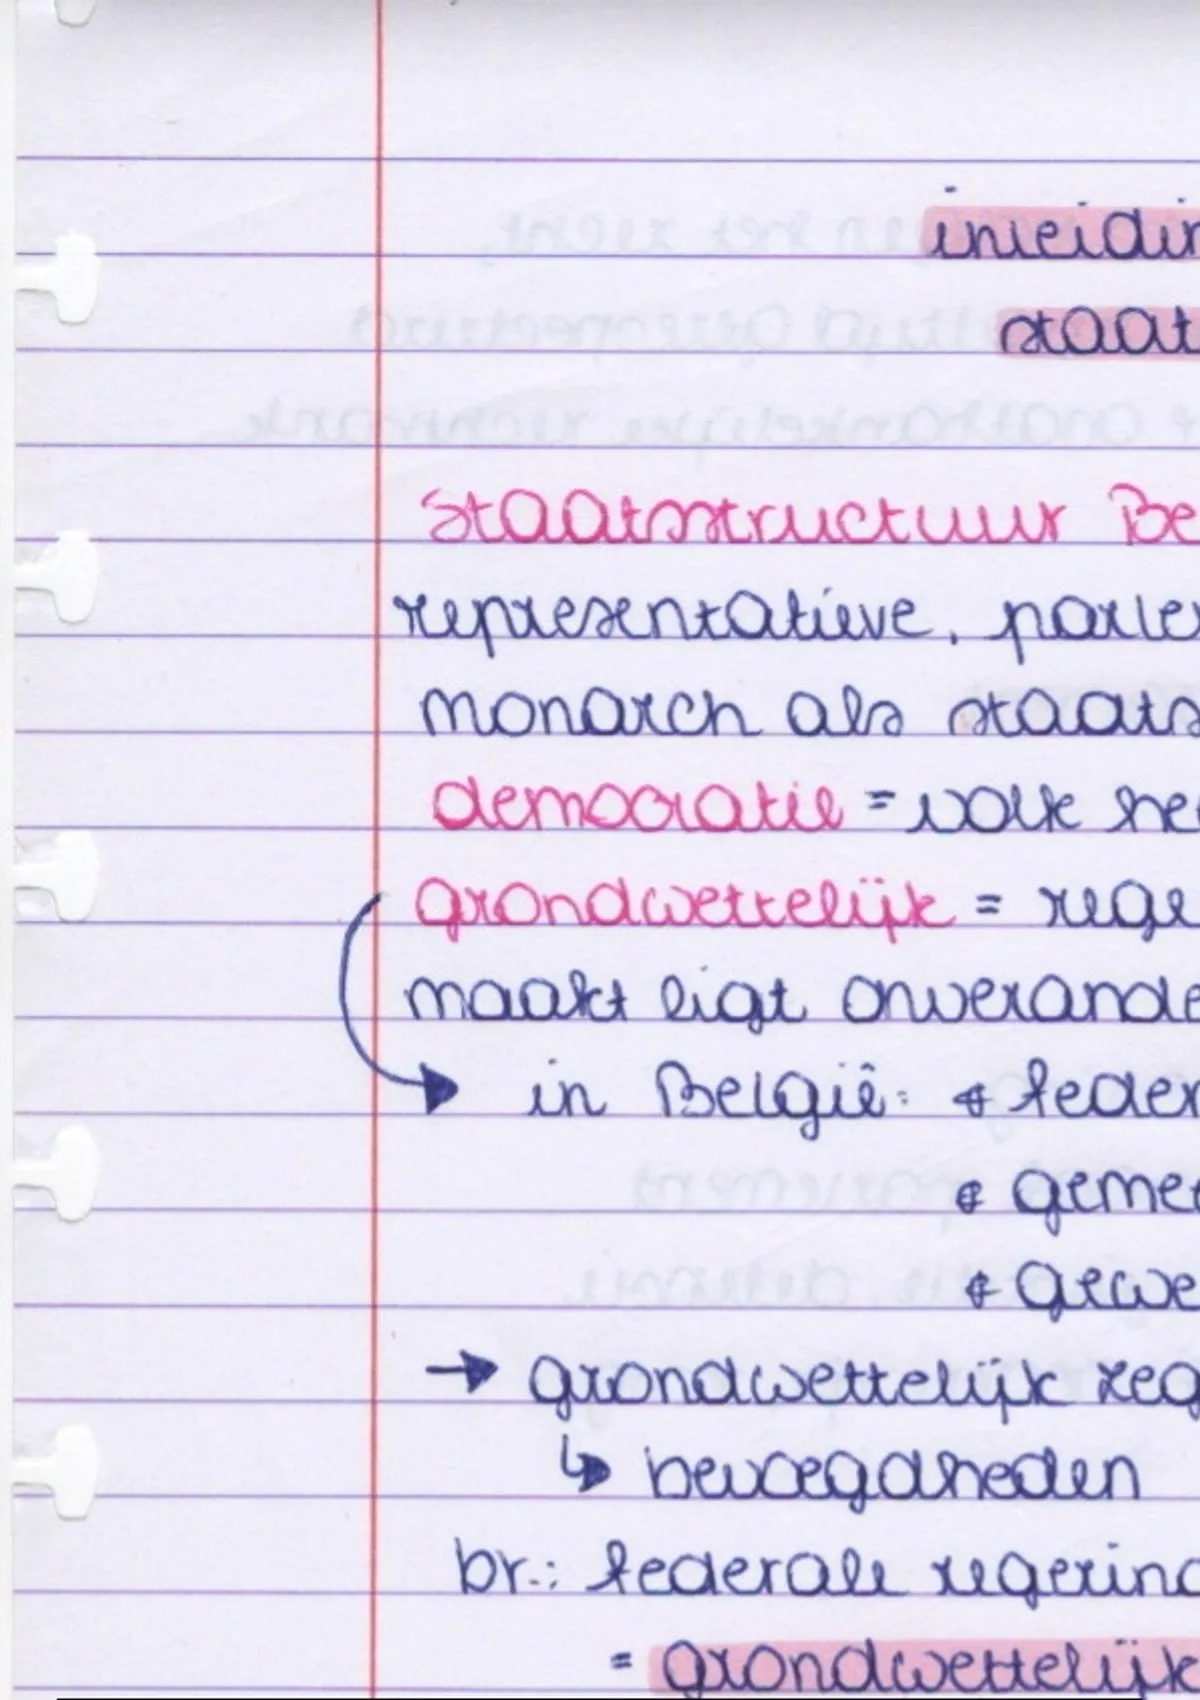 inleidin
staat
staatsstructuur Be
representatieve, parle
monarch als staats
democratie = volk he
grondwettelijk = rege
maakt ligt onverande
in België: * feder
* gemee
* gewe
→ grondwettelijk reg
↳ bevoegdheden
br.: federale regering
= grondwettelijk